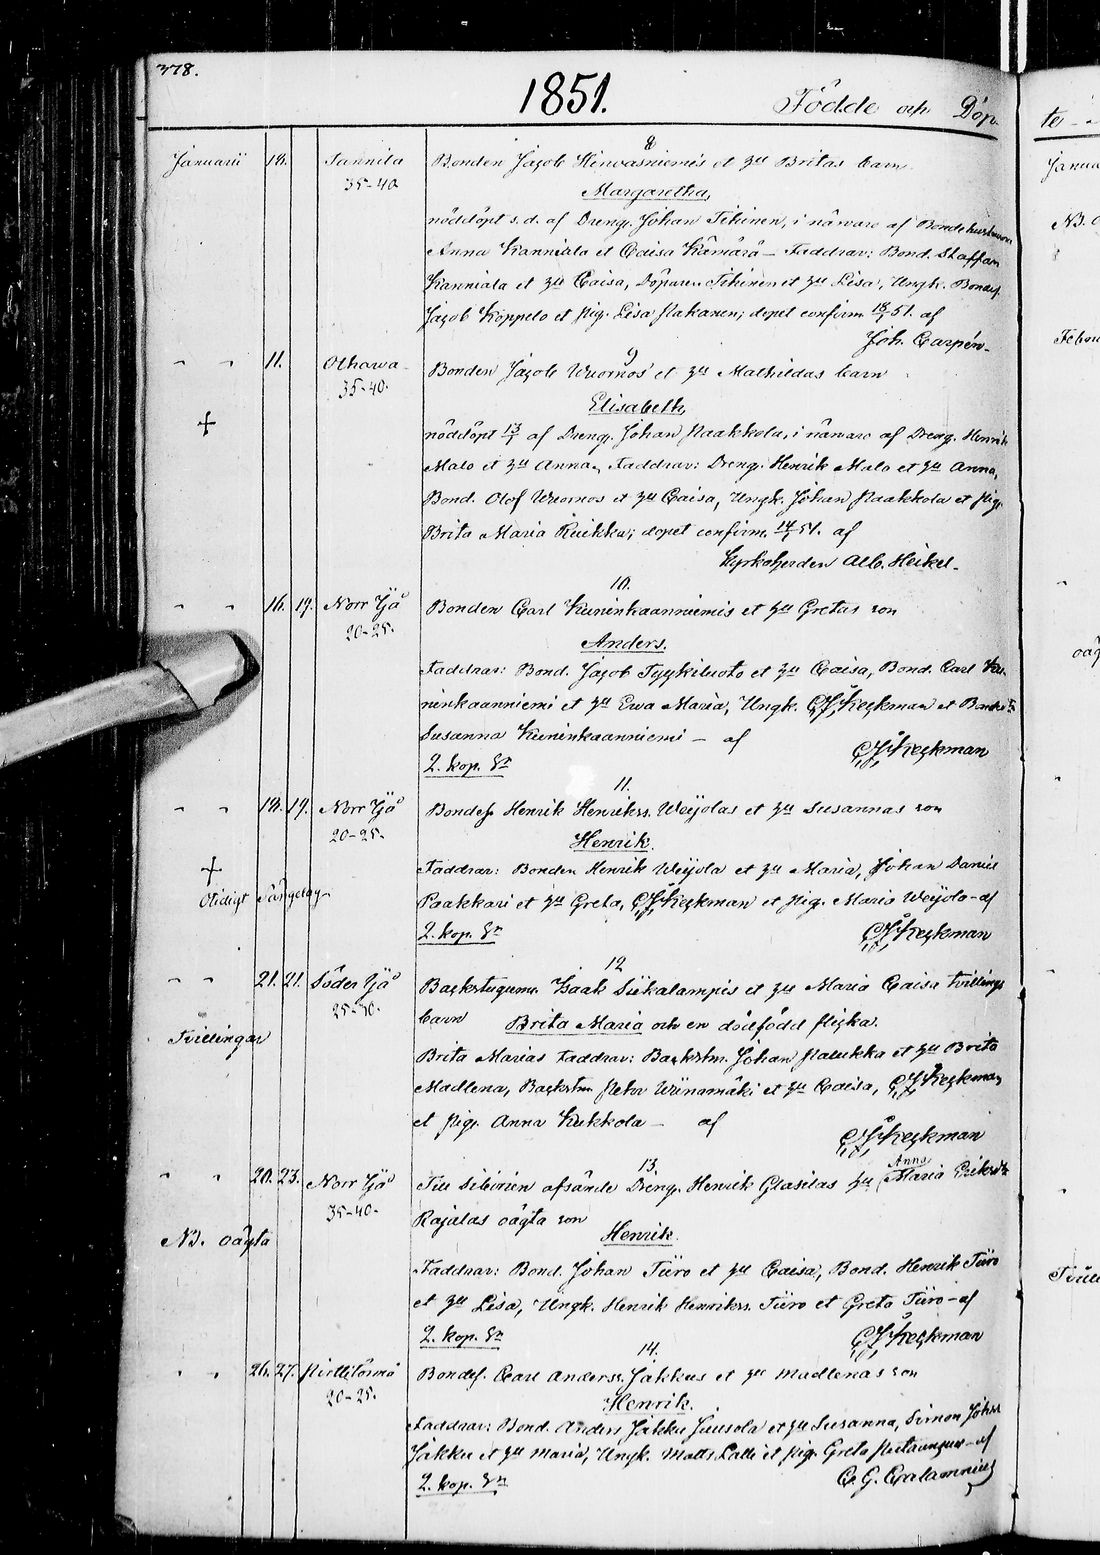 378.
1851. Födde och Döp
Januarii 18. Tannila 8
35-40 Bonden Jacob Hirvasniemis et hu Britas barn
Margaretha,
nöddöpt s.d. af Dreng. Johan Tihinen, i närvaro af Bondehustrurna
Anna Kanniala et Caisa Kämärä – Faddrar: Bond. Staffan
Kanniala et hu Caisa, Döparen Tihinen et hu Lisa, Ungk. Bondes.
Jacob Koppelo et pig. Lisa Pakanen; dopet confirm. 18/1 51. af
Joh. Carpén.
" " 11. Olhava 9
35-40. Bonden Jacob Wuornos et hu Mathildas barn
Elisabeth,
+ nöddöpt 13/1 af Dreng. Johan Paakkola, i närvaro af Dreng. Henrik
Malo et hu Anna, Faddrar: Dreng. Henrik Malo et hu Anna,
Bond. Olof Wuornos et hu Caisa, Ungk. Johan Paakkola et pig.
Brita Maria; dopet confirm. 14/1 51. af
Kyrkoherden Alb. Heikel.
10.
" " 16. 19. Norr Ijå Bonden Carl Kuninkaanniemis et hu Gretas son
20-25. Anders.
Faddrar: Bond. Jacob Tyykiluoto et hu Caisa, Bond. Carl Ku-
ninkaanniemi et hu Ewa Maria, Ungk. Keckman et
Susanna Kuninkaanniemi – af
2. kop. Sr Keckman
11.
" " 18. 19. Norr Ijå Bondes. Henrik Henrikss. Weijolas et hu Susannas son
20-25. Henrik.
+ Faddrar: Bonden Henrik Weijola et hu Maria, Johan Daniel
Otidigt Sängelag Paakkari et hu Greta, Keckman et pig. Maria Weijola – af
2. kop. Sr Keckman
12
" " 21. 21. Söder Ijå Backstugum. Isaak Siikalampis et hu Maria Caisa tvillings
25-30. barn Brita Maria och en dödfödd flicka.
Tvillingar Brita Marias Faddrar: Backstm. Johan Palukka et hu Brita
Madlena, Backstm. Petor Wiinamäki et hu Caisa, Keckman
et pig. Anna Kukkola – af
Keckman
13.
" " 20. 23. Norr Ijå Till Sibirien afsände Dreng. Henrik Glasilas hu Anna Maria
35-40. Rajalas oägta son
NB. oägta Henrik.
Faddrar: Bond. Johan Tiiro et hu Caisa, Bond. Henrik Tiiro
et hu Lisa, Ungk. Henrik Henrikss. Tiiro et Greta Tiiro – af
2. kop. Sr Keckman
14.
" " 26. 27. Pirttitörmä Bondes. Carl Anderss. Jakkus et hu Madlenas son
20-25. Henrik.
Faddrar: Bond. Anders Jakku Juusola et hu Susanna, Simon Johss.
Jakku et hu Maria, Ungk. Matts Lalli et pig. Greta – af
2. kop. Sr C. G. Calamnius
te
Janua
NB. O
Febru
oäg
Tvill